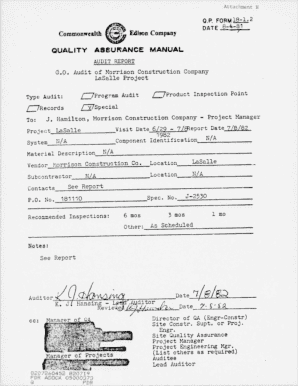 Attachment B
Q.P. FORM 18-1.2
DATE 8-4-81
Commonwealth Edison Company
QUALITY ASSURANCE MANUAL
AUDIT REPORT
G.O. Audit of Morrison Construction Company
LaSalle Project
Type Audit: Program Audit Product Inspection Point
Records Special
To: J. Hamilton, Morrison Construction Company - Project Manager
Project LaSalle Visit Date 6/29 - 7/8 1982 Report Date 7/8/82
System N/A Component Identification N/A
Material Description N/A
Vendor Morrison Construction Co. Location LaSalle
Subcontractor N/A Location N/A
Contacts See Report
P.O. No. 181110 Spec. No. J-2530
Recommended Inspections: 6 mos 3 mos 1 mo
Other: As Scheduled
Notes:
See Report
Auditor Date 7/8/82
Lead Auditor
Reviewed Date
cc: Manager of QA Director of QA (Engr-Constr)
Site Constr. Supt. or Proj.
Engr.
Site Quality Assurance
Project Manager
Project Engineering Mgr.
Manager of Projects (List others as required)
Auditee
Lead Auditor
PDR ADOCK 05000373